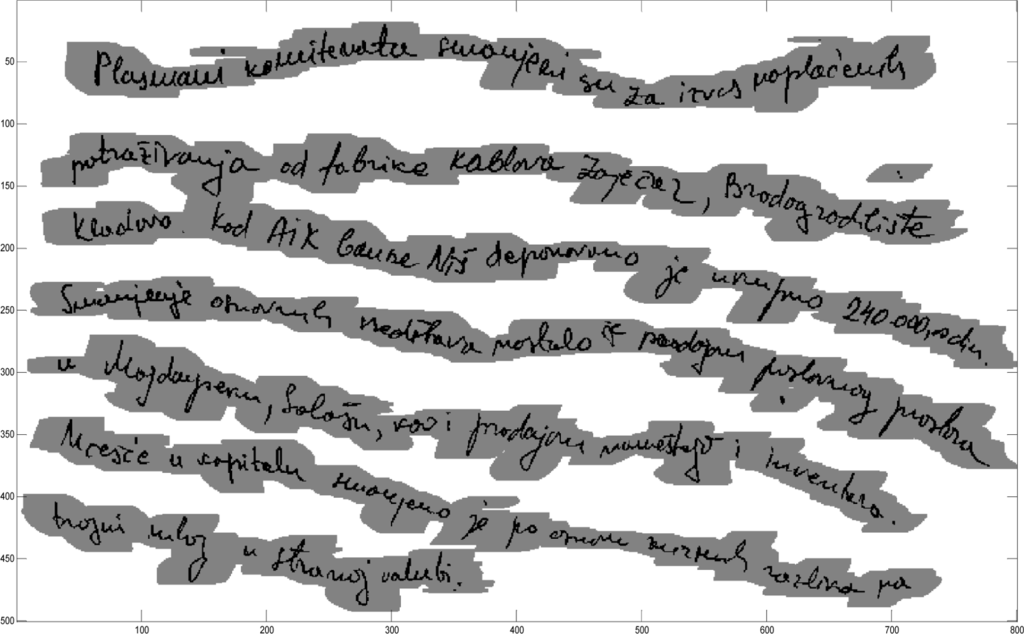 Plasmani komitenata smanjeni su za iznos naplaćenih
potraživanja od fabrike kablova Zaječar, Brodogradilište
Kladovo. Kod AIK banke Niš deponovano je ukupno 240.000,00 din.
Smanjenje osnovnih sredstava nastalo je prodajom poslovnog prostora
u Majdanpeku, Salašu, kao i prodajom nameštaja i inventara.
Učešće u kapitalu smanjeno je po osnovu kursnih razlika na
trajni ulog u stranoj valuti.
50 100 150 200 250 300 350 400 450 500
100 200 300 400 500 600 700 800